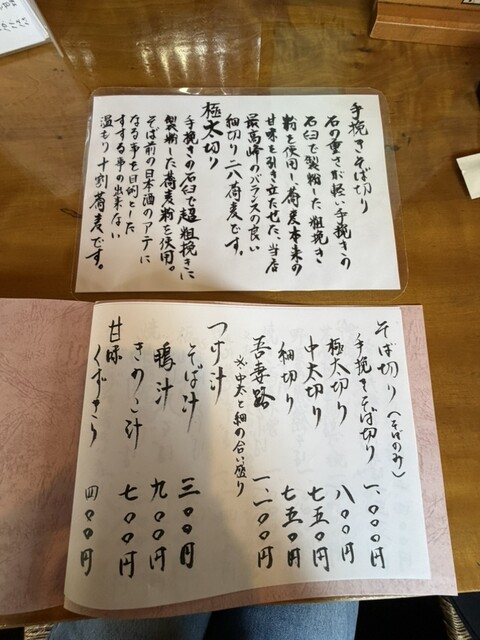 手挽きそば切り
石の重さが軽い手挽きの
石臼で製粉した粗挽き
粉を使用し、蕎麦本来の
甘味を引き立たせた、当店
最高峰のバランスの良い
細切り二八蕎麦です。
極太切り
手挽きの石臼で超粗挽きに
製粉した蕎麦粉を使用。
そば前の日本酒のアテに
なる事を目的とした
すする事の出来ない
温もり十割蕎麦です。
そば切り(そばのみ)
手挽きそば切り 一、〇〇〇円
極太切り 八〇〇円
中太切り 七五〇円
細切り 七五〇円
吾妻路 一、一〇〇円
※中太と細の合い盛り
つけ汁
そば汁 三〇〇円
鴨汁 九〇〇円
きのこ汁 七〇〇円
甘味
くずきり 四〇〇円